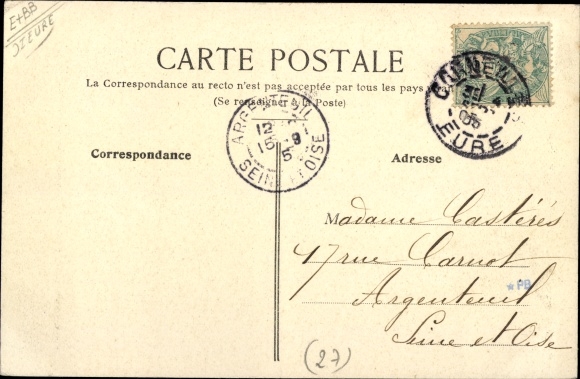 E+BB
DIEURE
CARTE POSTALE
La Correspondance au recto n'est pas acceptée par tous les pays
(Se renseigner à la Poste)
ARGENTEUIL
12
15 9
5
SEINE ET OISE
EURE
05
Correspondance
Adresse
Madame Castérés
47 rue Carnot
Argenteuil
Seine et Oise
* PB
(27)